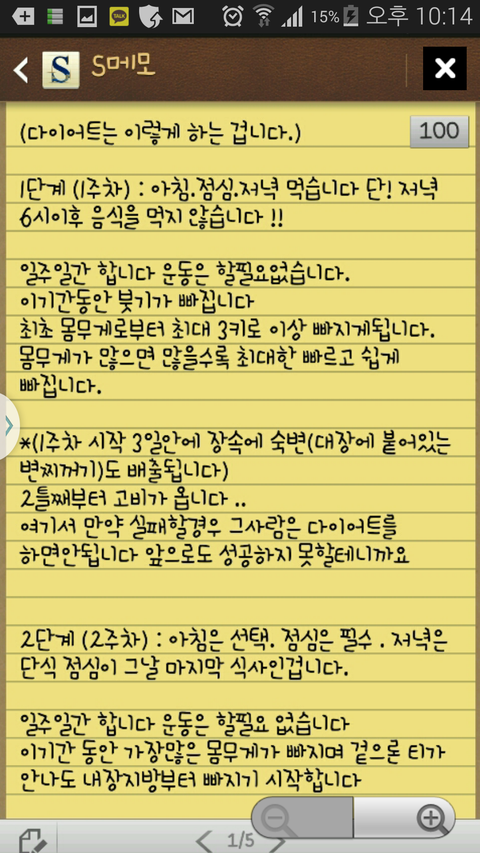 TALK
15%
오후 10:14
S
S메모
(다이어트는 이렇게 하는 겁니다.)
100
1단계 (1주차) : 아침.점심.저녁 먹습니다 단! 저녁
6시이후 음식을 먹지 않습니다 !!
일주일간 합니다 운동은 할필요없습니다.
이기간동안 붓기가 빠집니다
최초 몸무게로부터 최대 3키로 이상 빠지게됩니다.
몸무게가 많으면 많을수록 최대한 빠르고 쉽게
빠집니다.
*(1주차 시작 3일안에 장속에 숙변(대장에 붙어있는
변찌꺼기)도 배출됩니다)
2틀째부터 고비가 옵니다 ..
여기서 만약 실패할경우 그사람은 다이어트를
하면안됩니다 앞으로도 성공하지 못할테니까요
2단계 (2주차) : 아침은 선택. 점심은 필수 . 저녁은
단식 점심이 그날 마지막 식사인겁니다.
일주일간 합니다 운동은 할필요 없습니다
이기간 동안 가장많은 몸무게가 빠지며 겉으론 티가
안나도 내장지방부터 빠지기 시작합니다
1/5